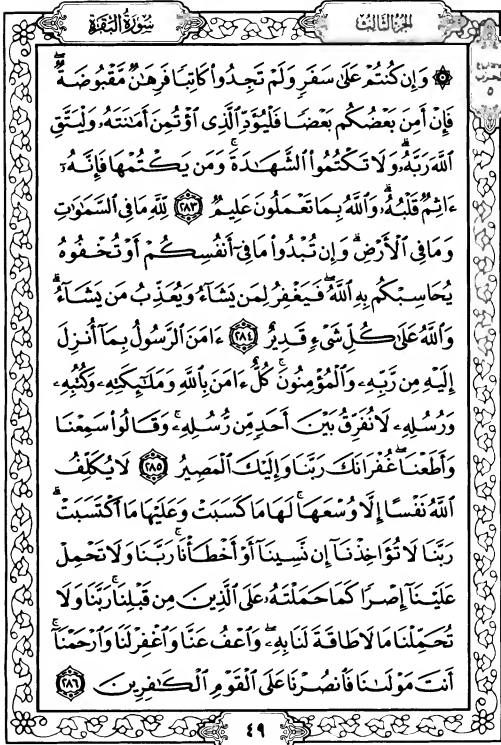 سُورَةُ البَقَرَةِ
الجُزْءُ الثَّالِثُ
۞ وَإِن كُنتُمْ عَلَىٰ سَفَرٍ وَلَمْ تَجِدُوا۟ كَاتِبًا فَرِهَـٰنٌ مَّقْبُوضَةٌ ۖ
فَإِنْ أَمِنَ بَعْضُكُم بَعْضًا فَلْيُؤَدِّ ٱلَّذِى ٱؤْتُمِنَ أَمَـٰنَتَهُۥ وَلْيَتَّقِ
ٱللَّهَ رَبَّهُۥ ۗ وَلَا تَكْتُمُوا۟ ٱلشَّهَـٰدَةَ ۚ وَمَن يَكْتُمْهَا فَإِنَّهُۥٓ
ءَاثِمٌ قَلْبُهُۥ ۗ وَٱللَّهُ بِمَا تَعْمَلُونَ عَلِيمٌ ٢٨٣ لِّلَّهِ مَا فِى ٱلسَّمَـٰوَٰتِ
وَمَا فِى ٱلْأَرْضِ ۗ وَإِن تُبْدُوا۟ مَا فِىٓ أَنفُسِكُمْ أَوْ تُخْفُوهُ
يُحَاسِبْكُم بِهِ ٱللَّهُ ۖ فَيَغْفِرُ لِمَن يَشَآءُ وَيُعَذِّبُ مَن يَشَآءُ ۗ
وَٱللَّهُ عَلَىٰ كُلِّ شَىْءٍ قَدِيرٌ ٢٨٤ ءَامَنَ ٱلرَّسُولُ بِمَآ أُنزِلَ
إِلَيْهِ مِن رَّبِّهِۦ وَٱلْمُؤْمِنُونَ ۚ كُلٌّ ءَامَنَ بِٱللَّهِ وَمَلَـٰٓئِكَتِهِۦ وَكُتُبِهِۦ
وَرُسُلِهِۦ لَا نُفَرِّقُ بَيْنَ أَحَدٍ مِّن رُّسُلِهِۦ ۚ وَقَالُوا۟ سَمِعْنَا
وَأَطَعْنَا ۖ غُفْرَانَكَ رَبَّنَا وَإِلَيْكَ ٱلْمَصِيرُ ٢٨٥ لَا يُكَلِّفُ
ٱللَّهُ نَفْسًا إِلَّا وُسْعَهَا ۚ لَهَا مَا كَسَبَتْ وَعَلَيْهَا مَا ٱكْتَسَبَتْ ۗ
رَبَّنَا لَا تُؤَاخِذْنَآ إِن نَّسِينَآ أَوْ أَخْطَأْنَا ۚ رَبَّنَا وَلَا تَحْمِلْ
عَلَيْنَآ إِصْرًا كَمَا حَمَلْتَهُۥ عَلَى ٱلَّذِينَ مِن قَبْلِنَا ۚ رَبَّنَا وَلَا
تُحَمِّلْنَا مَا لَا طَاقَةَ لَنَا بِهِۦ ۖ وَٱعْفُ عَنَّا وَٱغْفِرْ لَنَا وَٱرْحَمْنَآ ۚ
أَنتَ مَوْلَىٰنَا فَٱنصُرْنَا عَلَى ٱلْقَوْمِ ٱلْكَـٰفِرِينَ ٢٨٦
الحزب
٥
٤٩